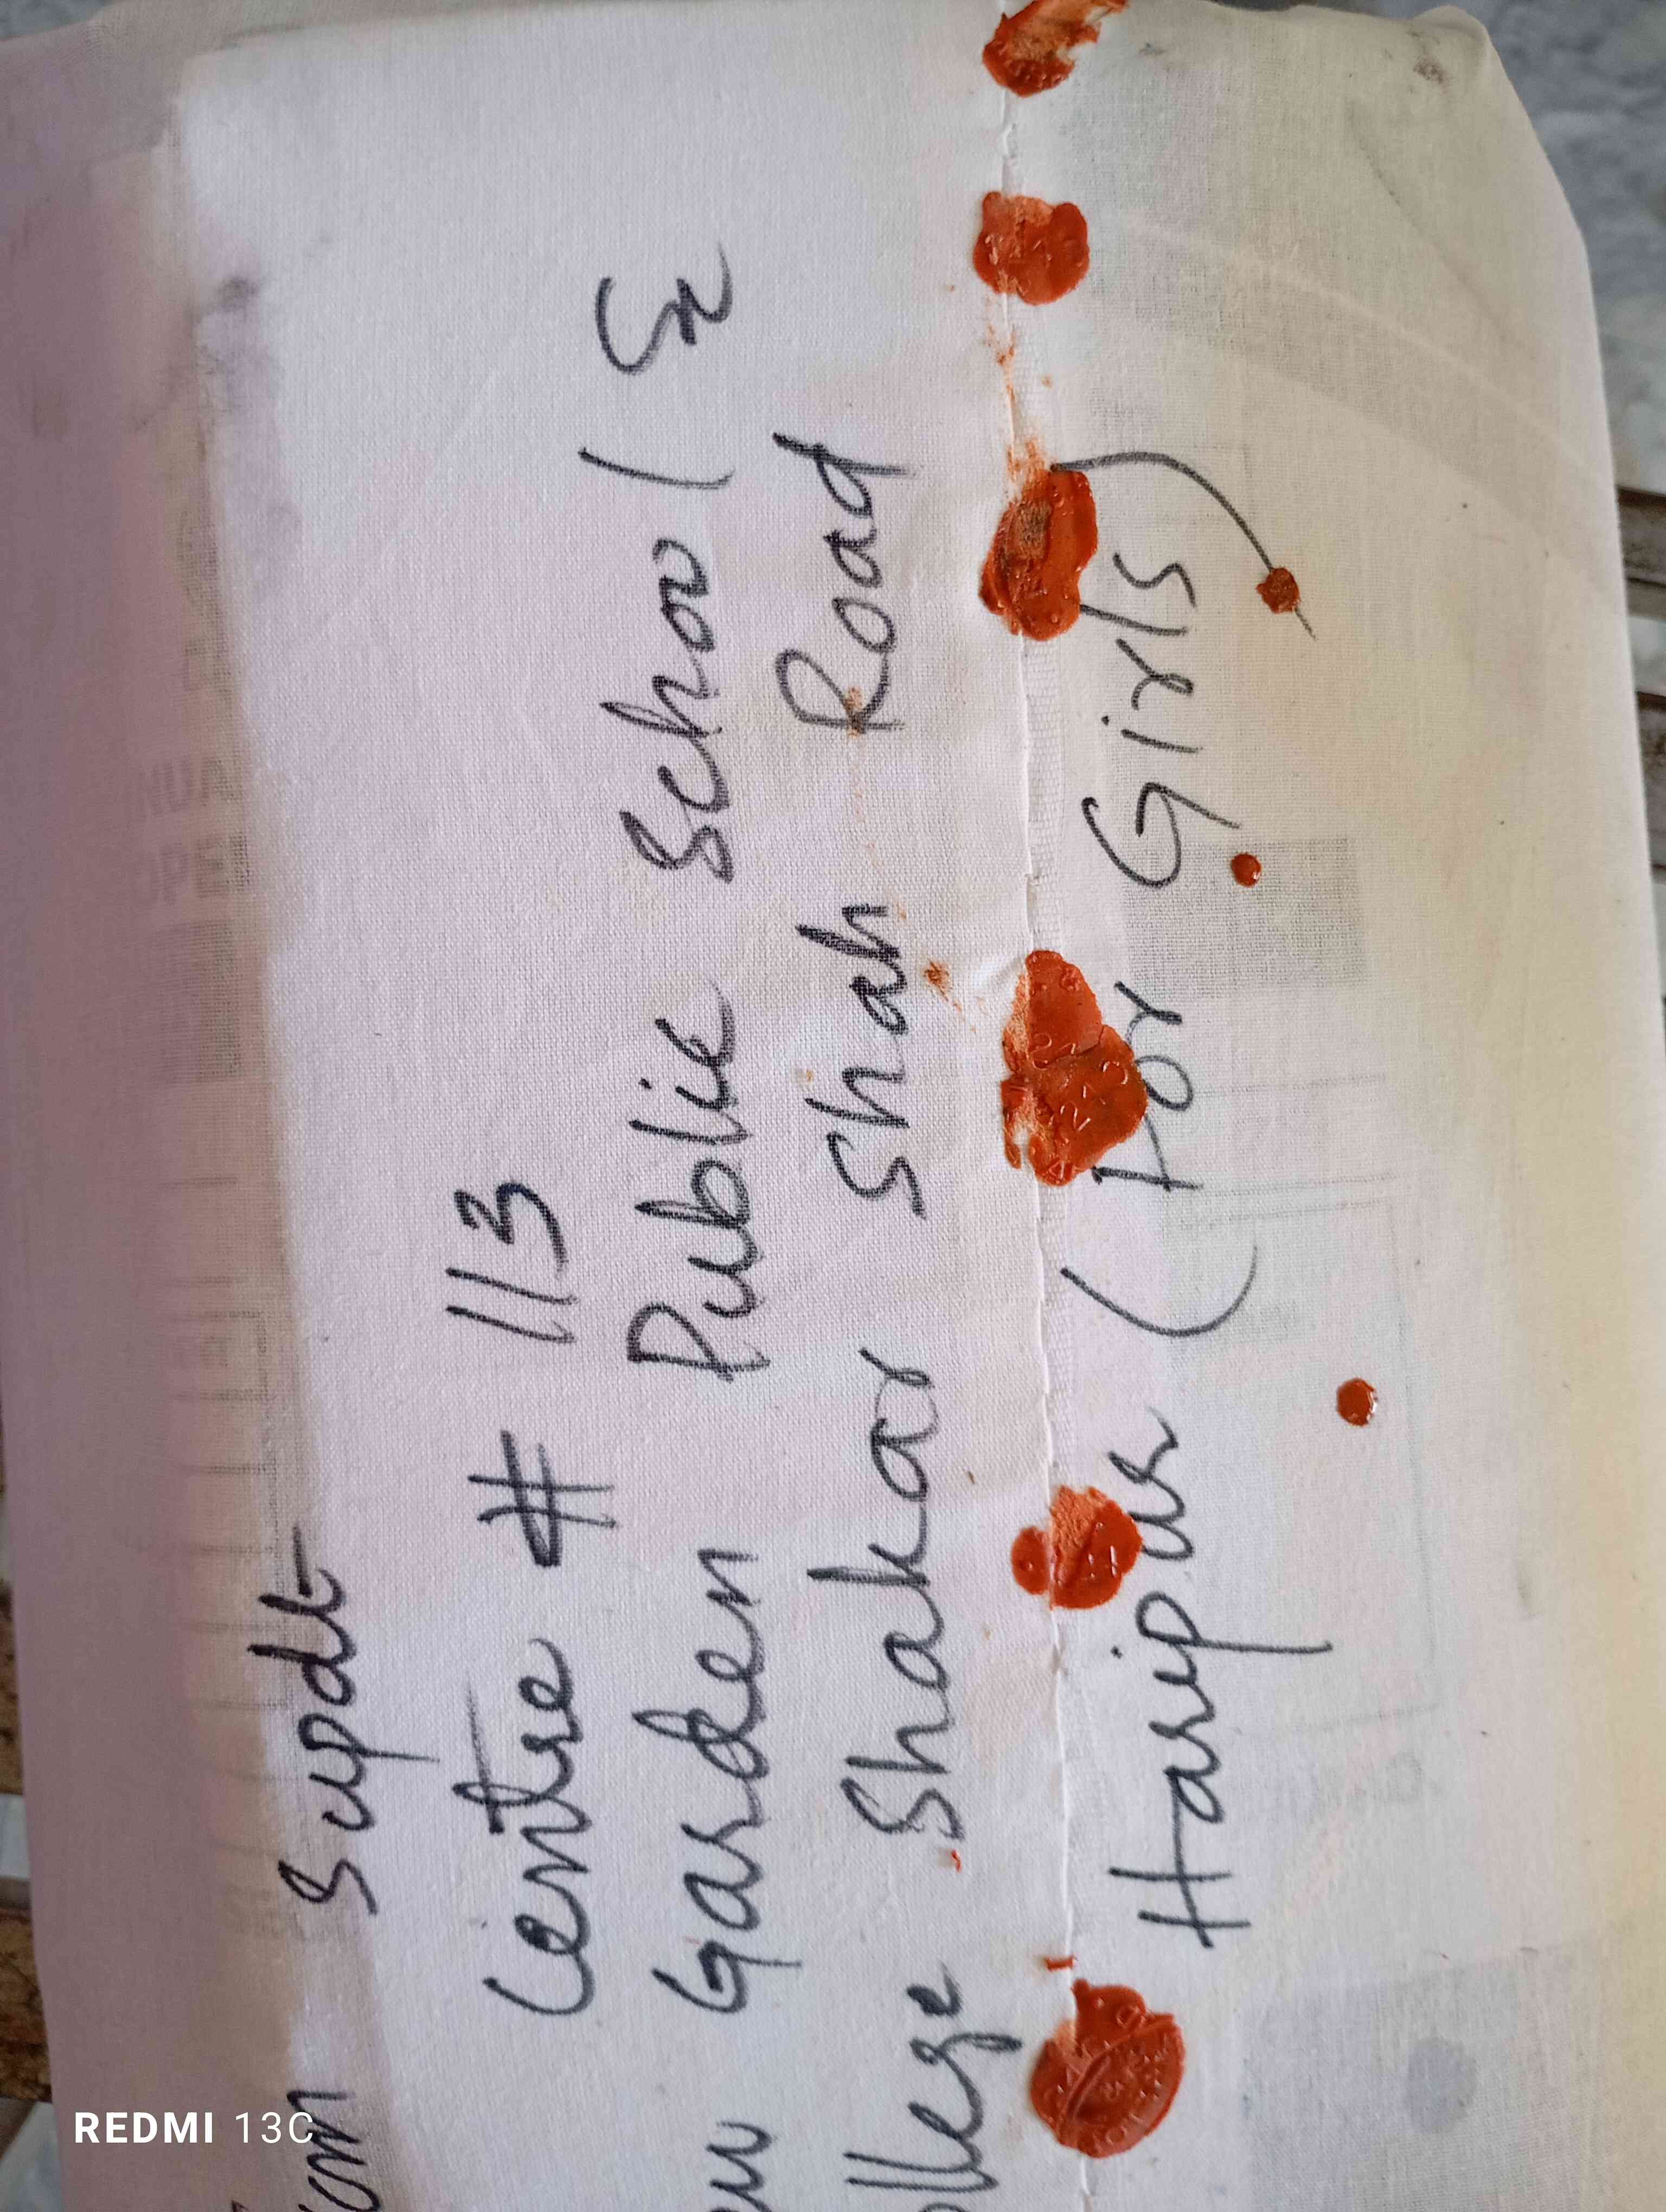 Supdt
Centre # 113
Garden Public School &
Shakar Shah Road
Haripur (For Girls)
REDMI 13C